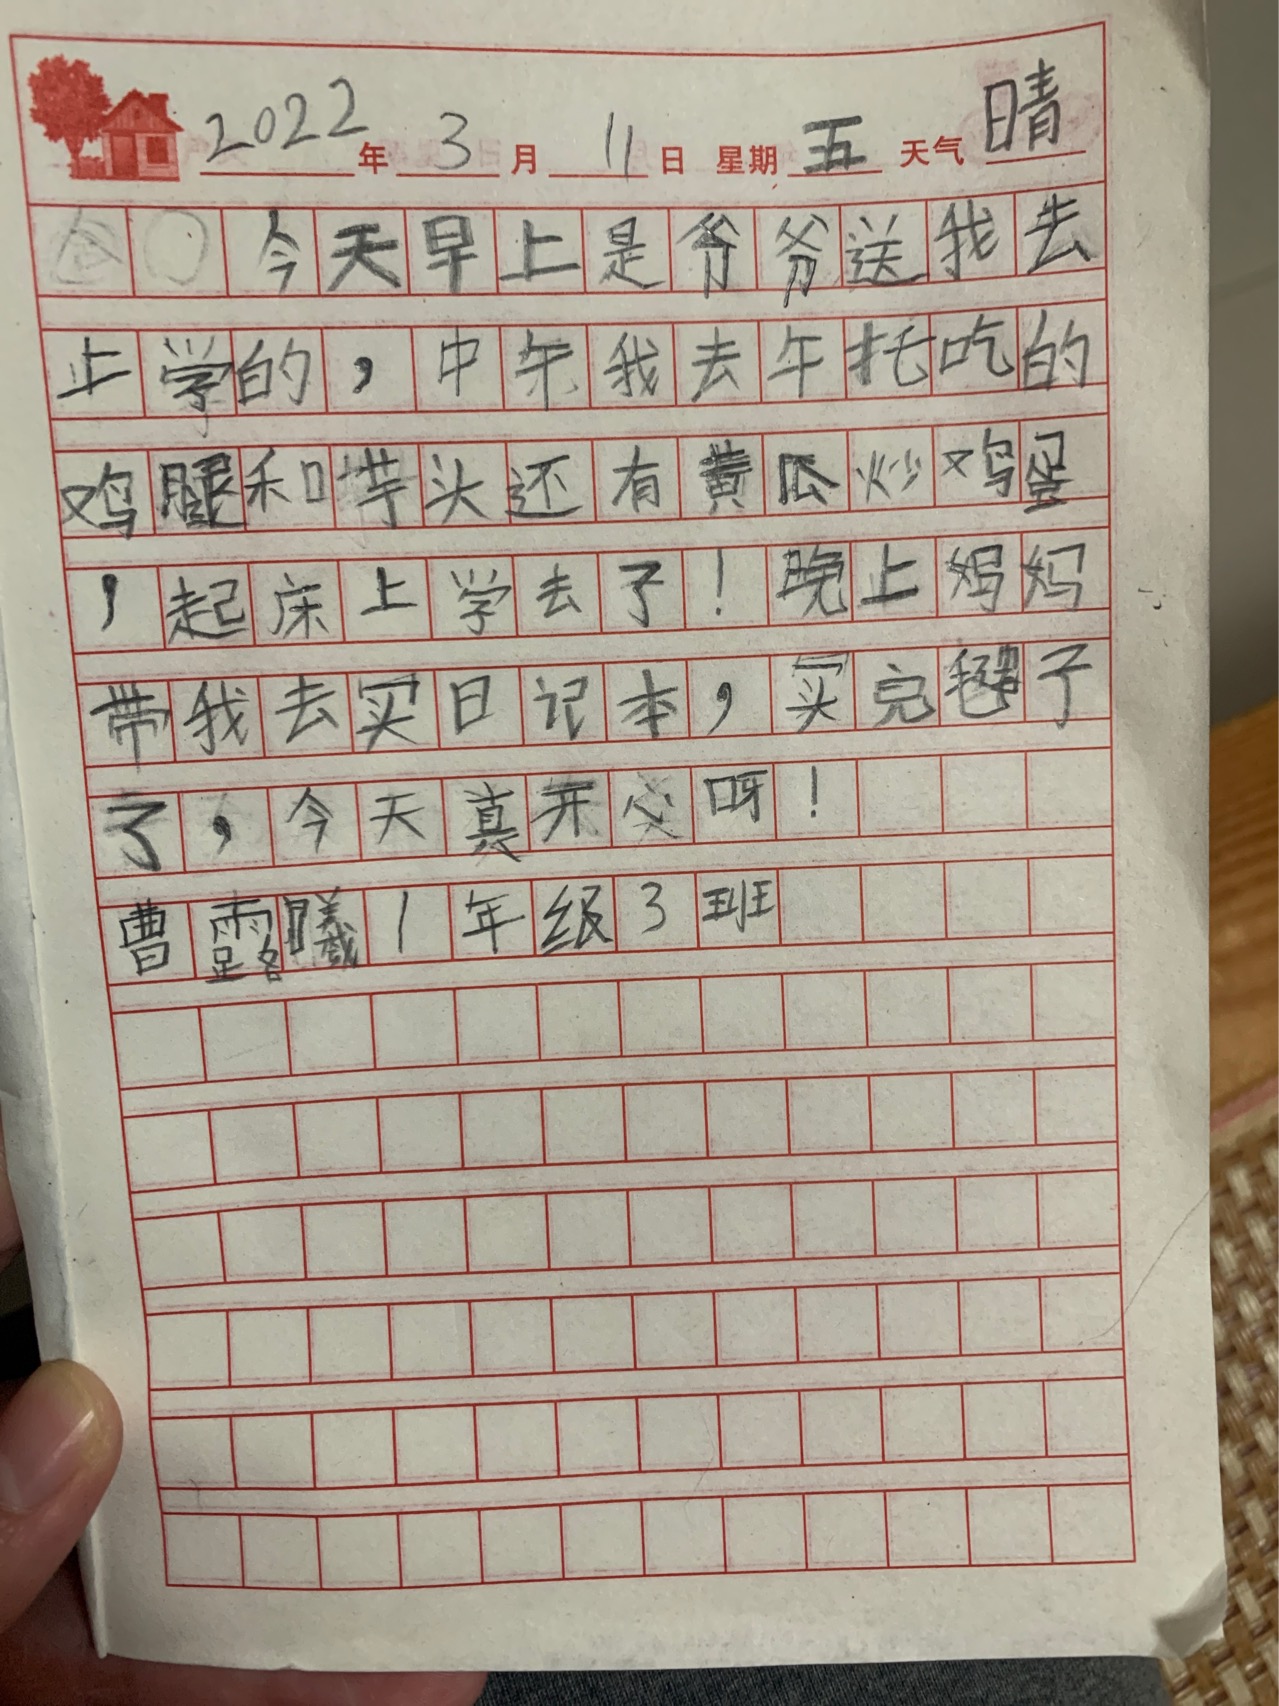 2022年3月11日 星期五 天气晴
今天早上是爷爷送我去
上学的，中午我去午托吃的
鸡腿和芋头还有黄瓜炒鸡蛋
，起床上学去了！晚上妈妈
带我去买日记本，买完毽子
了，今天真开心呀！
曹露曦1年级3班